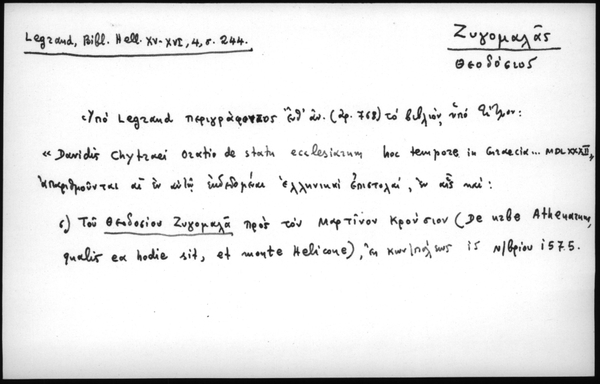 Legrand, Bibl. Hell. XV-XVI, 4, σ. 244.
Ζυγομαλᾶς
Θεοδόσιος
Ὑπὸ Legrand περιγράφοντος ἔνθ' ἀν. (ἀρ. 768) τὸ βιβλίον, ὑπὸ τίτλον:
« Davidis Chytraei oratio de statu ecclesiarum hoc tempore in Graecia... MDLXXXII,
ἀπαριθμοῦνται αἱ ἐν αὐτῷ ἐκδεδομέναι ἑλληνικαὶ ἐπιστολαί, ἐν αἷς καί:
ς) Τοῦ Θεοδοσίου Ζυγομαλᾶ πρὸς τὸν Μαρτῖνον Κρούσιον (De urbe Athenarum,
qualis ea hodie sit, et monte Helicone), ἐκ Κων/πόλεως 15 Ν/βρίου 1575.